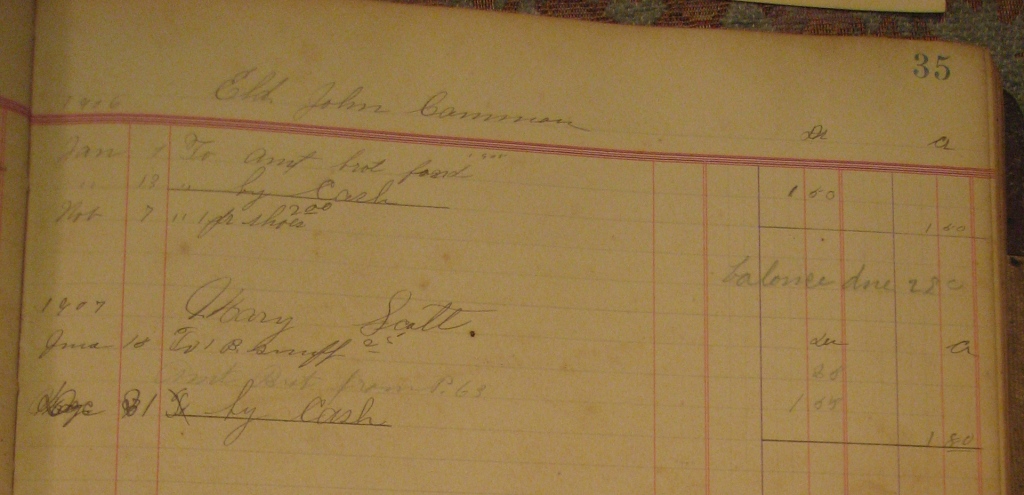 35
1906 Eld. John Cammon
Dr Cr
Jan 1 To Amt brot forwd 1 50
" 13 " by Cash 1 50
Nov 7 " 1 pr shoes 2 00
balance due
1907 Mary Scott.
Dr Cr
18 To 1 B. Snuff 25
Amt Brot from P. 63
31 by Cash 1 80